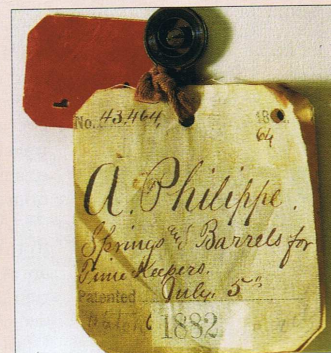 No. 43,464 18
64
A. Philippe.
Springs and Barrels for
Time Keepers.
Patented July. 5th
1882